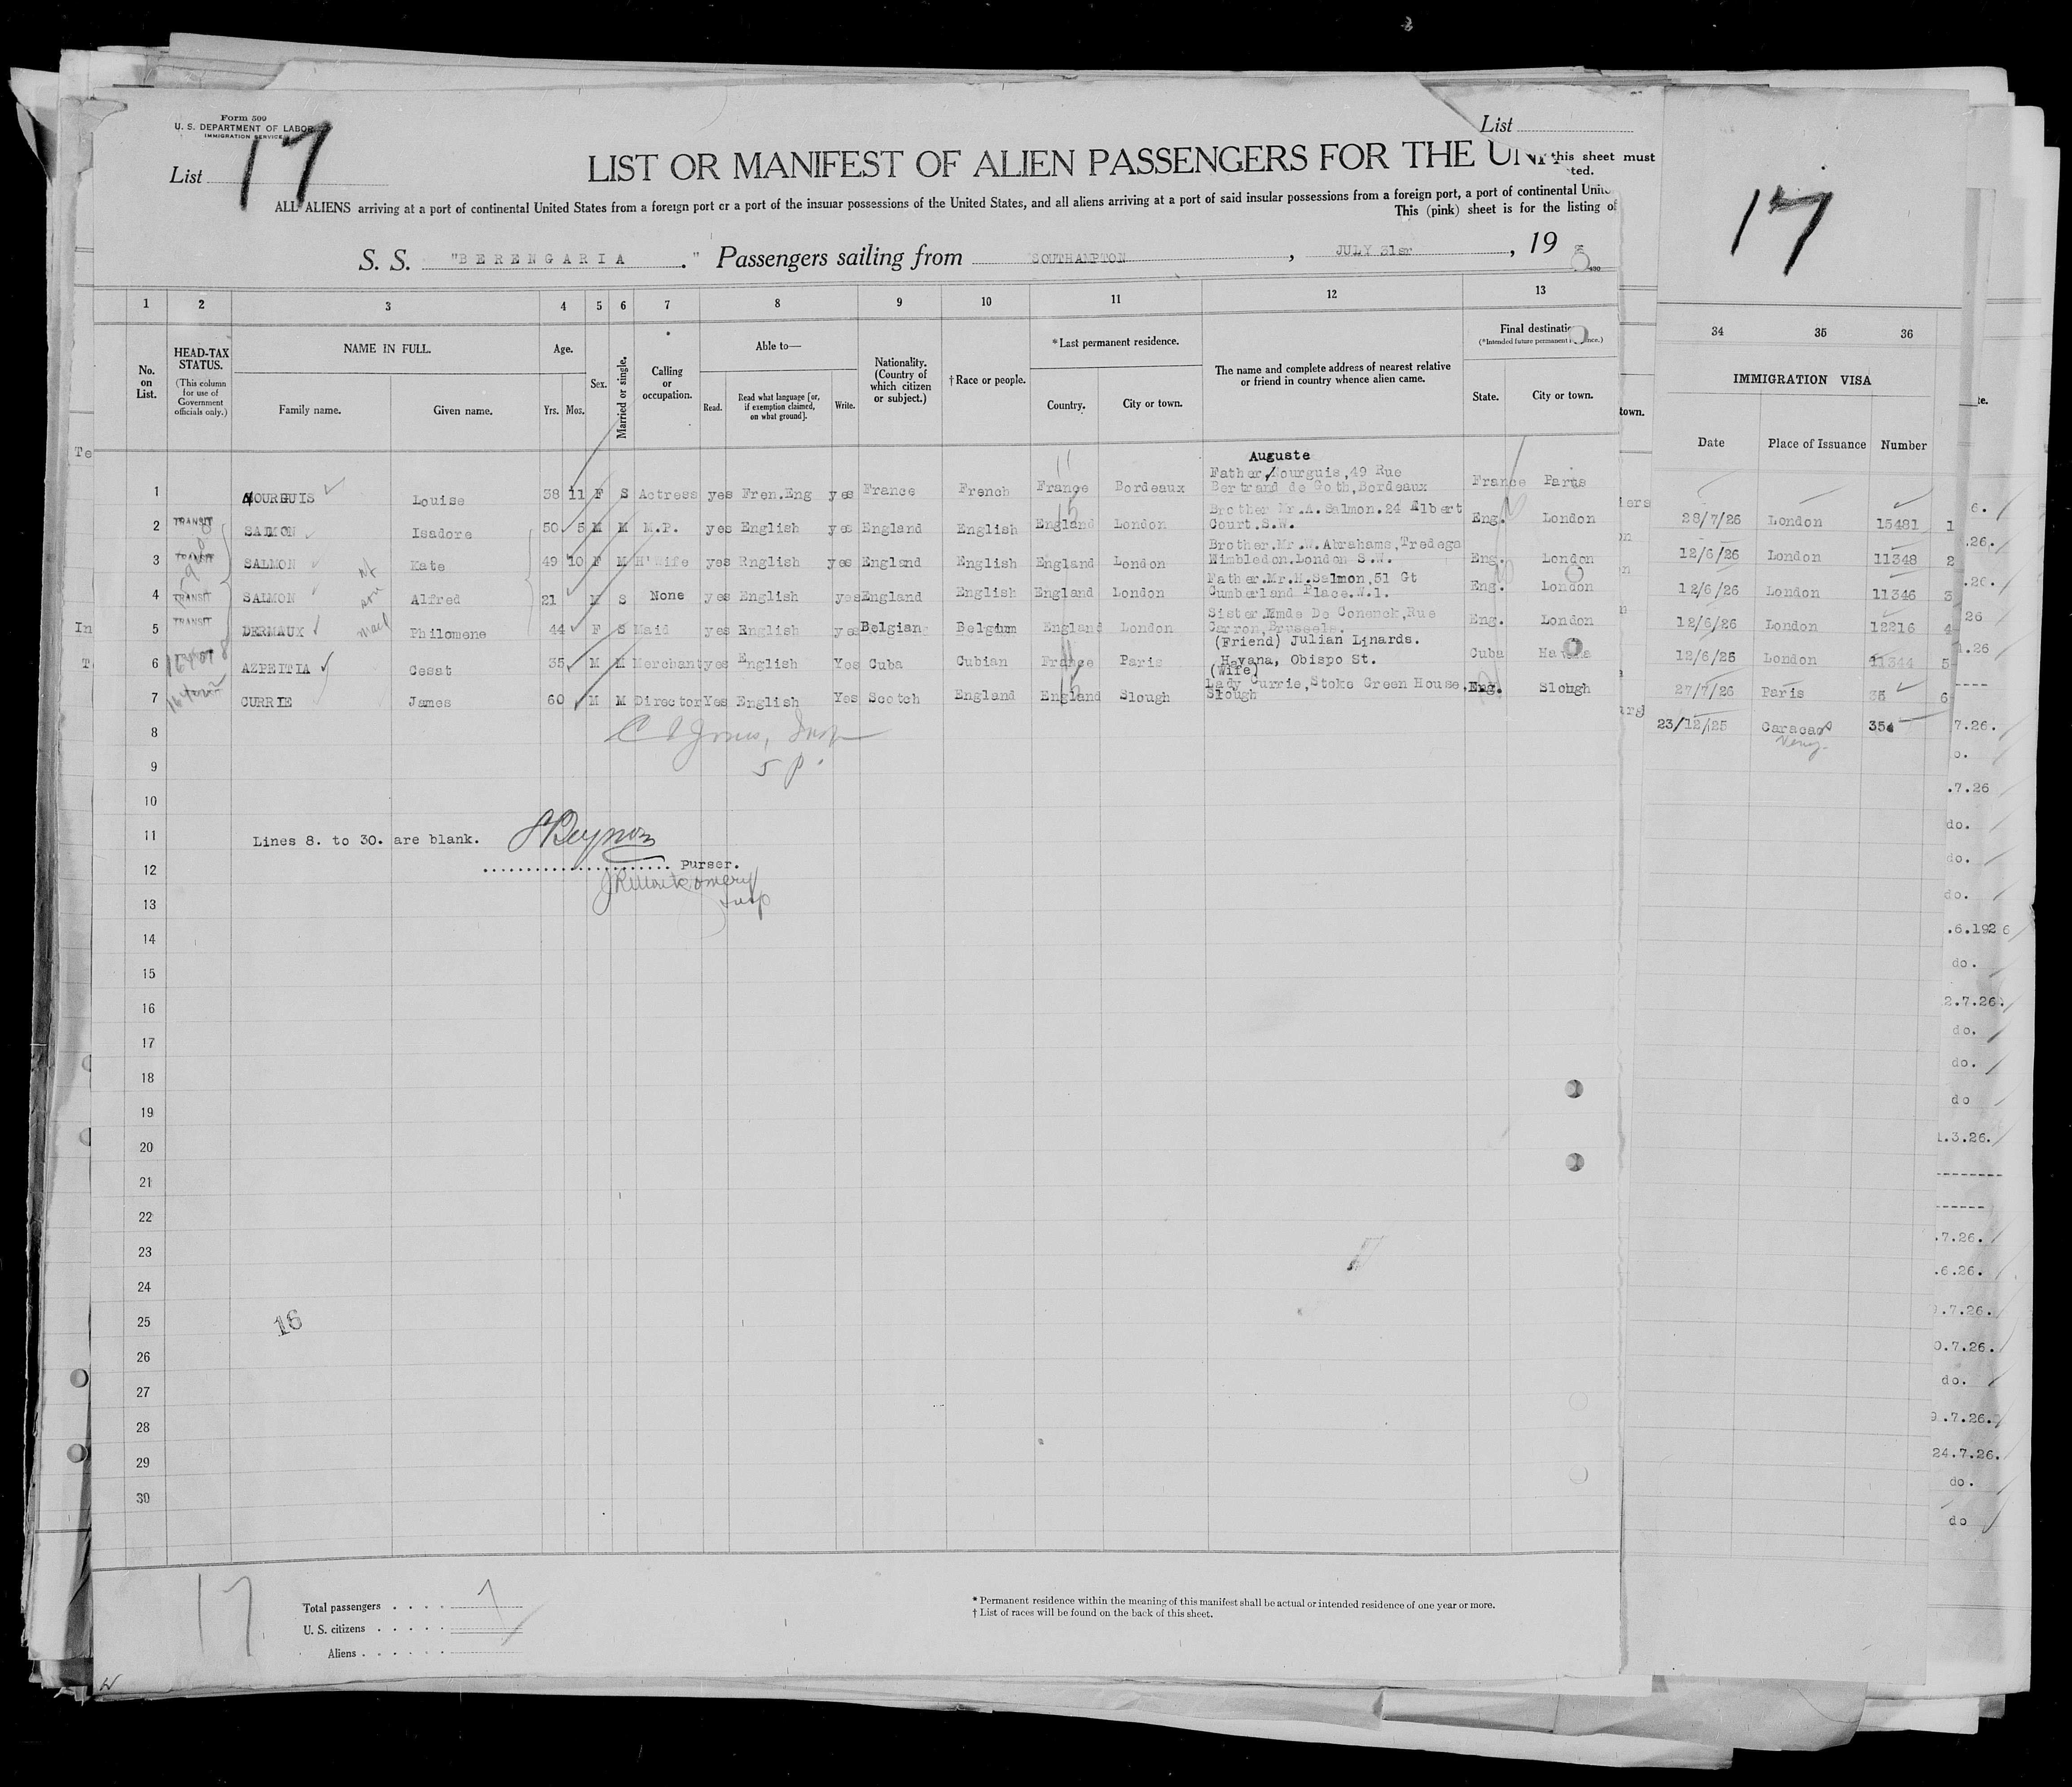 Form 500
U. S. DEPARTMENT OF LABOR
IMMIGRATION SERVICE
List 17
List
LIST OR MANIFEST OF ALIEN PASSENGERS FOR THE UNI
this sheet must
ted.
ALL ALIENS arriving at a port of continental United States from a foreign port or a port of the insular possessions of the United States, and all aliens arriving at a port of said insular possessions from a foreign port, a port of continental Unit
This (pink) sheet is for the listing of
17
S. S. "BERENGARIA." Passengers sailing from SOUTHAMPTON, JULY 31st, 19
1 2 3 4 5 6 7 8 9 10 11 12 13 34 35 36
No. on List.
HEAD-TAX STATUS.
(This column for use of Government officials only.)
NAME IN FULL.
Family name. Given name.
Age.
Yrs. Mos.
Sex.
Married or single.
Calling or occupation.
Able to—
Read. Read what language [or, if exemption claimed, on what ground]. Write.
Nationality. (Country of which citizen or subject.)
† Race or people.
* Last permanent residence.
Country. City or town.
The name and complete address of nearest relative or friend in country whence alien came.
Final destination
(*Intended future permanent
State. City or town.
IMMIGRATION VISA
Date Place of Issuance Number
Auguste
1 MOURGUIS Louise 38 11 F S Actress yes Fren.Eng yes France French France Bordeaux Father, Mourguis,49 Rue Bertrand de Goth,Bordeaux France Paris
28/7/26 London 15481 1
2 TRANSIT SALMON Isadore 50 5 M M M.P. yes English yes England English England London Brother Mr.A. Salmon.24 Albert Court.S.W. Eng. London
12/6/26 London 11348 2
3 TRANSIT SALMON Kate 49 10 F M H'Wife yes Rnglish yes England English England London Brother.Mr.W.Abrahams,Tredega Wimbledon.London S.W. Eng. London
12/6/26 London 11346 3
4 TRANSIT SALMON Alfred 21 M S None yes English yes England English England London Father.Mr.H.Salmon,51 Gt Cumberland Place.W.1. Eng. London
12/6/26 London 12216 4
5 TRANSIT DERMAUX Philomene 44 F S Maid yes English yes Belgian Belgium England London Sister.Mmde De Conenck,Rue Carron,Brussels. Eng. London
12/6/26 London 11344 5
6 AZPEITIA Cesat 35 M M Merchant yes English Yes Cuba Cubian France Paris (Friend) Julian Linards. Havana, Obispo St. Cuba Havana
27/7/26 Paris 35 6
7 CURRIE James 60 M M Director Yes English Yes Scotch England England Slough (Wife) Lady Currie,Stoke Green House. Slough Eng. Slough
23/12/25 Caracas 354
8
9
10
11 Lines 8. to 30. are blank.
12 Purser.
13
14
15
16
17
18
19
20
21
22
23
24
25
16
26
27
28
29
30
17
Total passengers 7
U. S. citizens
Aliens
* Permanent residence within the meaning of this manifest shall be actual or intended residence of one year or more.
† List of races will be found on the back of this sheet.